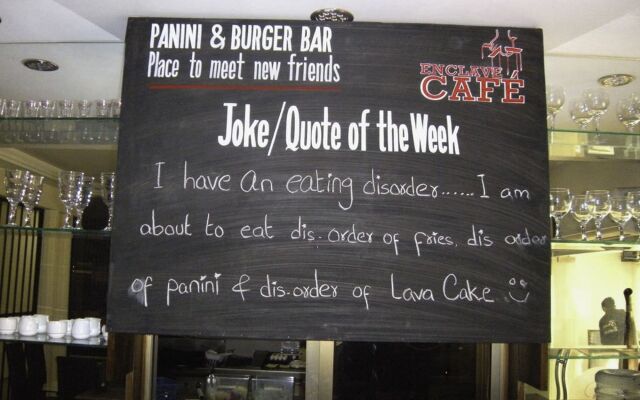 PANINI & BURGER BAR
Place to meet new friends
ENCLAVE
CAFÉ
Joke/Quote of the Week
I have an eating disorder......I am
about to eat dis-order of fries, dis order
of panini & dis-order of Lava Cake